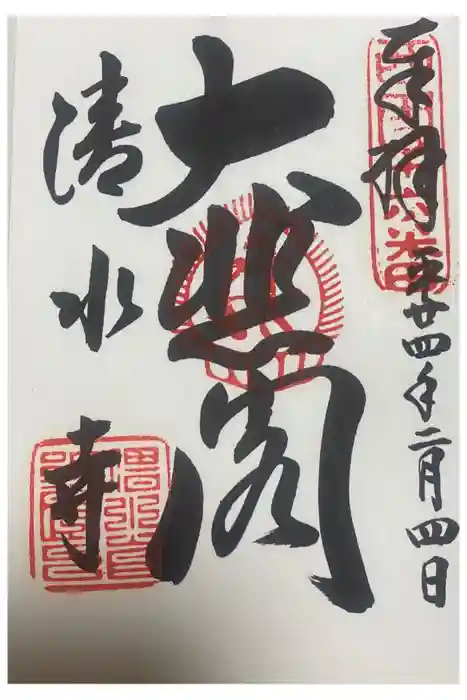 奉拝
平廿四年二月四日
大悲閣
清水寺